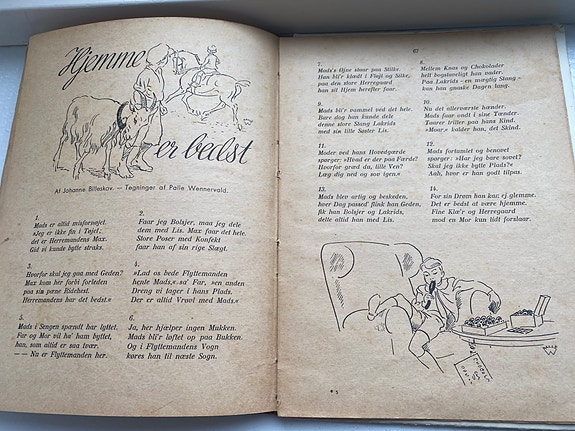 Hjemme
er bedst
Af Johanne Billeskov. — Tegninger af Palle Wennervald.
1.
Mads er altid misfornøjet.
»Jeg er ikke fin i Tøjet,
det er Herremandens Max.
Gid vi kunde bytte straks.
2.
Faar jeg Bolsjer, maa jeg dele
dem med Lis. Max faar det hele.
Store Poser med Konfekt
faar han af sin rige Slægt.
3.
Hvorfor skal jeg gaa med Geden?
Max kom her forbi forleden
paa sin pæne Ridehest.
Herremandens har det bedst.«
4.
»Lad os bede Flyttemanden
hente Mads,« sa' Far, »en anden
Dreng vi tager i hans Plads.
Der er altid Vrøvl med Mads.«
5.
Mads i Sengen spændt har lyttet.
Far og Mor vil ha' ham byttet,
han, som altid er saa tvær.
— — Nu er Flyttemanden her.
6.
Ja, her hjælper ingen Mukken.
Mads bli'r løftet op paa Bukken.
Og i Flyttemandens Vogn
køres han til næste Sogn.
67
7.
Mads's Øjne staar paa Stilke.
Han bli'r klædt i Fløjl og Silke,
paa den store Herregaard
han sit Hjem herefter faar.
8.
Mellem Knas og Chokolader
helt bogstaveligt han vader.
Paa Lakrids - en mægtig Stang -
kan han gnaske Dagen lang.
9.
Mads bli'r vammel ved det hele.
Bare dog han kunde dele
denne store Stang Lakrids
med sin lille Søster Lis.
10.
Nu det allerværste hænder.
Mads faar ondt i sine Tænder.
Taarer triller paa hans Kind.
»Moar,« kalder han, det Skind.
11.
Moder ved hans Hovedgærde
spørger: »Hvad er der paa Færde?
Hvorfor græd du, lille Ven?
Læg dig ned og sov igen.«
12.
Mads fortumlet og benovet
spørger: »Har jeg bare sovet?
Skal jeg ikke bytte Plads?«
Aah, hvor er han godt tilpas.
13.
Mads blev artig og beskeden,
hver Dag passed' flink han Geden,
fik han Bolsjer og Lakrids,
delte altid han med Lis.
14.
For sin Drøm han kan ej glemme.
Det er bedst at være hjemme.
Fine Klæ'r og Herregaard
mod en Mor kun lidt forslaar.